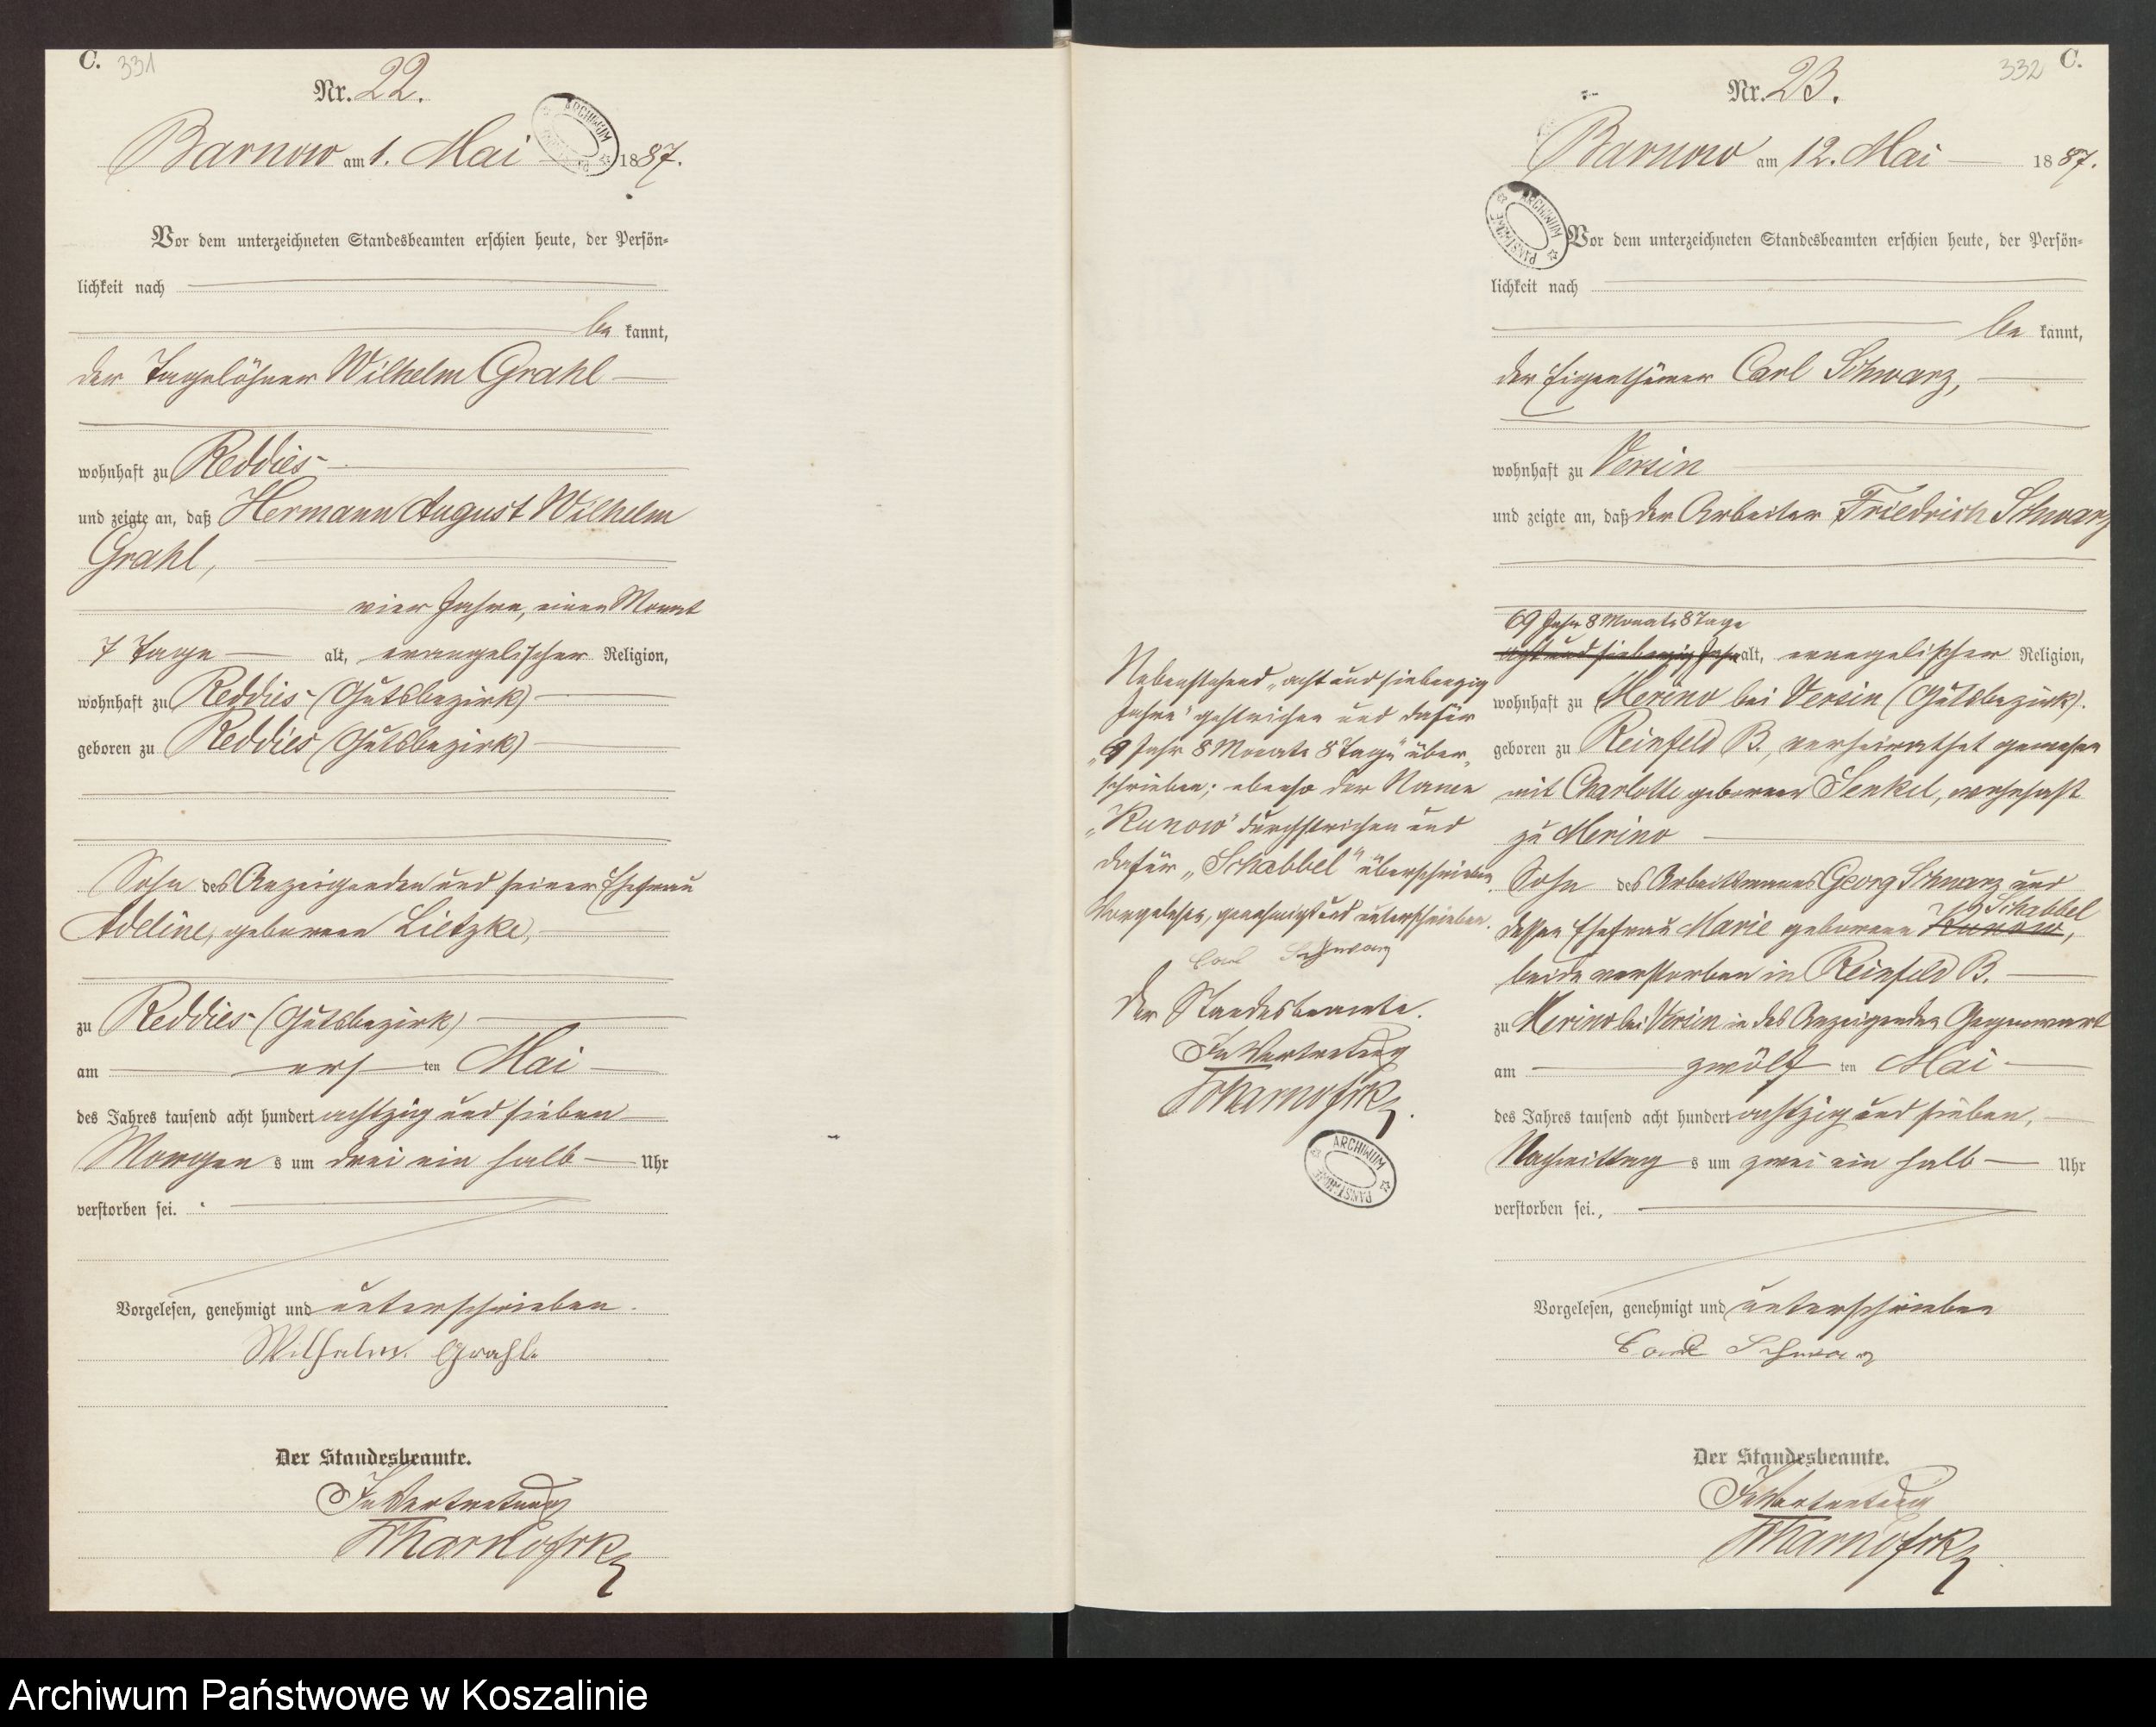 C. 331
Nr. 22.
Barnow am 1. Mai 1887.
ARCHIWUM
Vor dem unterzeichneten Standesbeamten erschien heute, der Persön-
lichkeit nach
be kannt,
der Tagelöhner Wilhelm Grahl
wohnhaft zu Reddies
und zeigte an, daß Hermann August Wilhelm
Grahl,
vier Jahre, einen Monat
7 Tage alt, evangelischer Religion,
wohnhaft zu Reddies (Gutsbezirk)
geboren zu Reddies (Gutsbezirk)
Sohn des Anzeigenden und seiner Ehefrau
Adeline, geborene Lietzke,
zu Reddies (Gutsbezirk)
am ers ten Mai
des Jahres tausend acht hundert achtzig und sieben
Morgen s um drei ein halb Uhr
verstorben sei.
Vorgelesen, genehmigt und unterschrieben.
Wilhelm Grahl.
Der Standesbeamte.
In Vertretung
332 C.
Nr. 23.
Barnow am 12. Mai 1887.
ARCHIWUM PAŃSTWOWE
Vor dem unterzeichneten Standesbeamten erschien heute, der Persön-
lichkeit nach
be kannt,
der Eigenthümer Carl Schwarz,
wohnhaft zu Versin
und zeigte an, daß der Arbeiter Friedrich Schwarz
69 Jahr 8 Monate 8 Tage
acht und siebenzig Jahre alt, evangelischer Religion,
wohnhaft zu Merino bei Versin (Gutsbezirk).
geboren zu Reinfeld B., verheirathet gewesen
mit Charlotte geborener Senkel, wohnhaft
zu Merino
Sohn des Arbeitsmannes Georg Schwarz und
Schabbel
dessen Ehefrau Marie geborene Kunow,
beide verstorben in Reinfeld B.
zu Merino bei Versin in des Anzeigenden Gegenwart
am zwölf ten Mai
des Jahres tausend acht hundert achtzig und sieben,
Nachmittag s um zwei ein halb Uhr
verstorben sei.,
Vorgelesen, genehmigt und unterschrieben
Carl Schwarz
Der Standesbeamte.
In Vertretung
Nebenstehend „acht und siebenzig
Jahre" gestrichen und dafür
„69 Jahr 8 Monate 8 Tage" über-
schrieben; ebenso der Name
„Kunow" durchstrichen und
dafür „Schabbel" überschrieben.
Vorgelesen, genehmigt und unterschrieben.
Carl Schwarz
Der Standesbeamte.
In Vertretung
ARCHIWUM PAŃSTWOWE
Archiwum Państwowe w Koszalinie